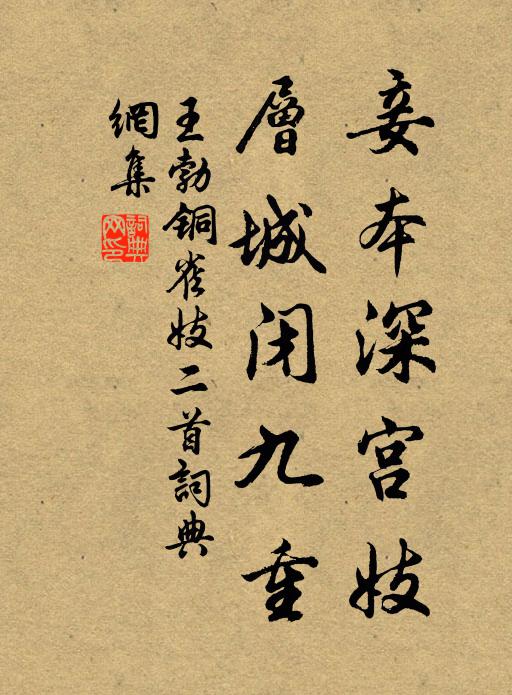 妾本深宫妓
層城闭九重
王勃铜雀妓二首詞典
網集
詞典网印